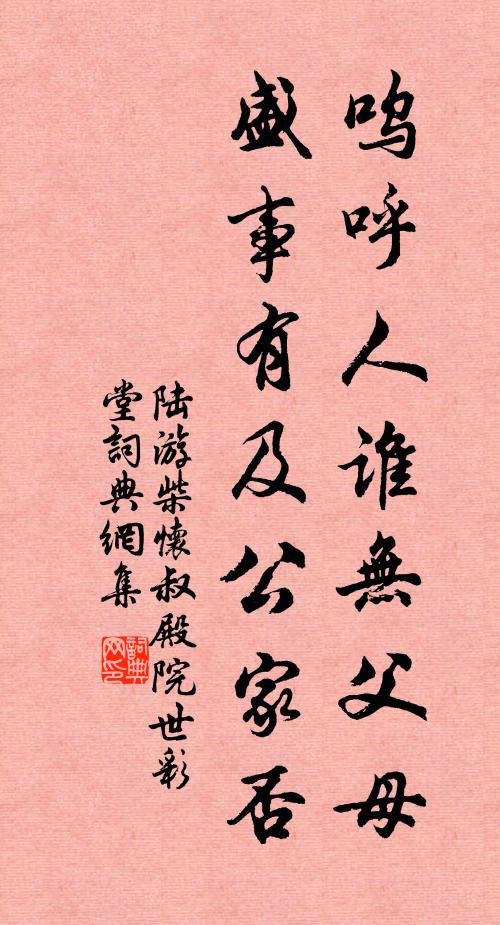 嗚呼人誰無父母
盛事有及公家否
陆游柴懷叔殿院世彩
堂詞典網集
詞典网印